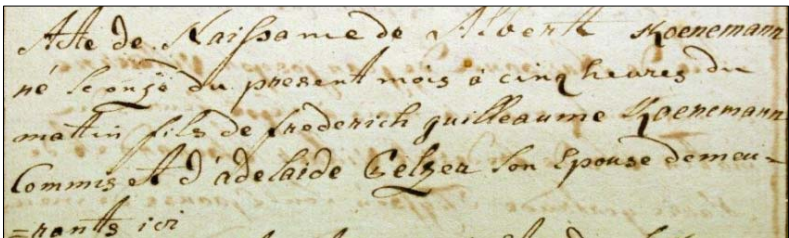 Acte de Naissance de Albert Koenemann
né le onze du present mois à cinq heures du
matin fils de froderich guilleaume Koenemann
Commis et d'adelaide Gelzer son Epouse demeu-
=rants ici